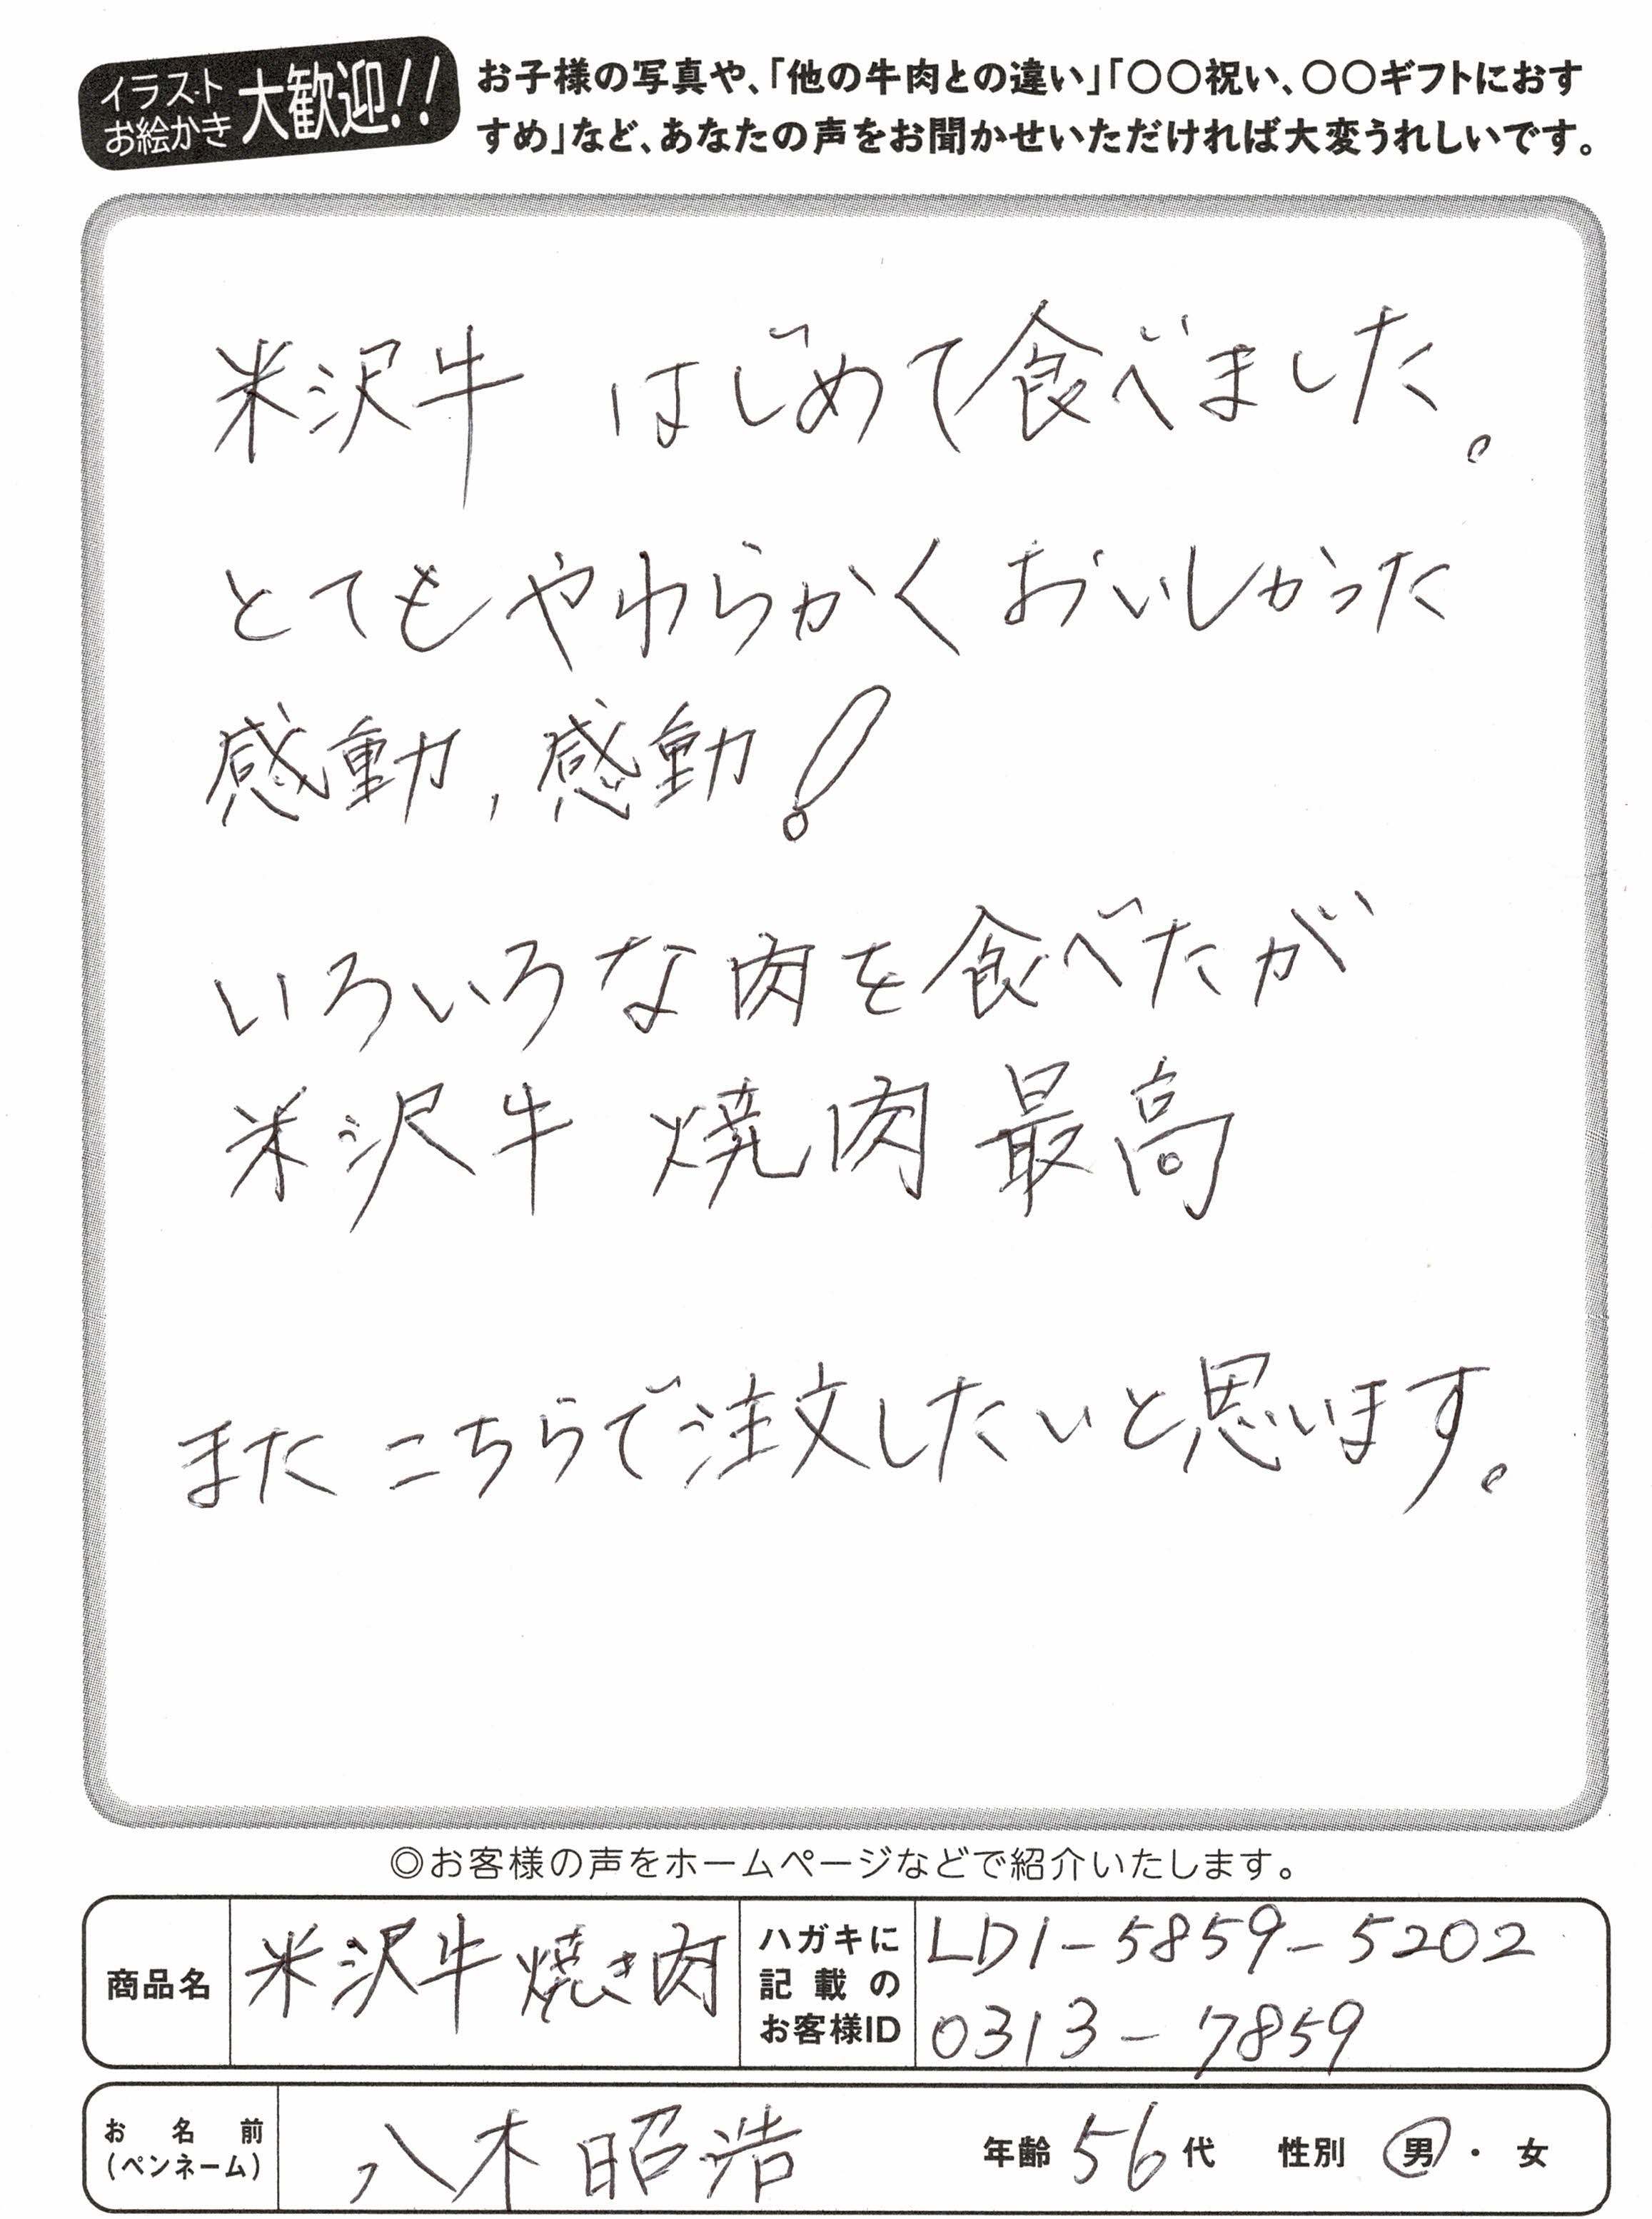 イラスト
お絵かき
大歓迎!!
お子様の写真や、「他の牛肉との違い」「〇〇祝い、〇〇ギフトにおす
すめ」など、あなたの声をお聞かせいただければ大変うれしいです。
米沢牛 はじめて食べました。
とてもやわらかく おいしかった
感動、感動!
いろいろな肉を食べたが
米沢牛 焼肉 最高
また こちらで注文したいと思います。
◎お客様の声をホームページなどで紹介いたします。
商品名 米沢牛焼き肉
ハガキに
記載の
お客様ID
LD1-5859-5202
0313-7859
お名前
(ペンネーム)
八木 昭浩
年齢 56 代 性別 男・女